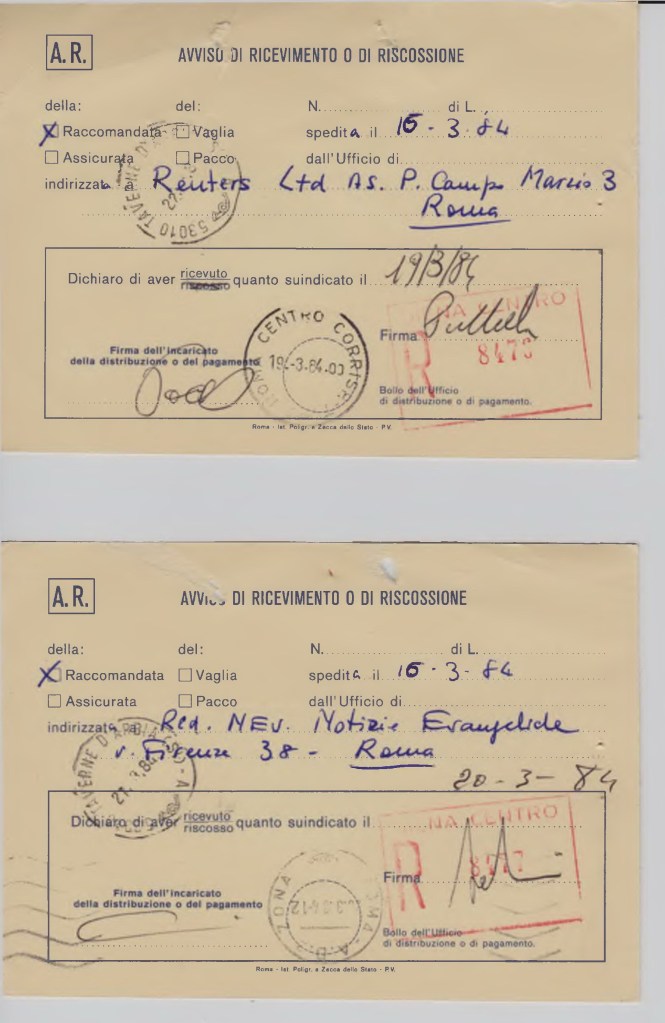 A.R. AVVISO DI RICEVIMENTO O DI RISCOSSIONE
della: del: N. di L.
X Raccomandata Vaglia spedita il 15-3-84
Assicurata Pacco dall'Ufficio di
indirizzata a Reuters Ltd As. P. Campo Marzio 3
Roma
53010 TAVERNE D'A
Dichiaro di aver ricevuto quanto suindicato il 19/3/84
riscosso
CENTRO CORRISP
19-3.84.00
ROMA
Firma
NA CENTRO
R 847
Firma dell'incaricato
della distribuzione o del pagamento
Bollo dell'Ufficio
di distribuzione o di pagamento.
Roma - Ist. Poligr. e Zecca dello Stato - P.V.
A.R. AVVISO DI RICEVIMENTO O DI RISCOSSIONE
della: del: N. di L.
X Raccomandata Vaglia spedita il 15-3-84
Assicurata Pacco dall'Ufficio di
indirizzata a Red. NEV. Notizie Evangeliche
v. Firenze 38 - Roma
TAVERNE D'ARBIA
20-3-84
Dichiaro di aver ricevuto quanto suindicato il
riscosso
NA CENTRO
R
Firma
Firma dell'incaricato
della distribuzione o del pagamento
ROMA - A.D. ZONA
Bollo dell'Ufficio
di distribuzione o di pagamento.
Roma - Ist. Poligr. e Zecca dello Stato - P.V.